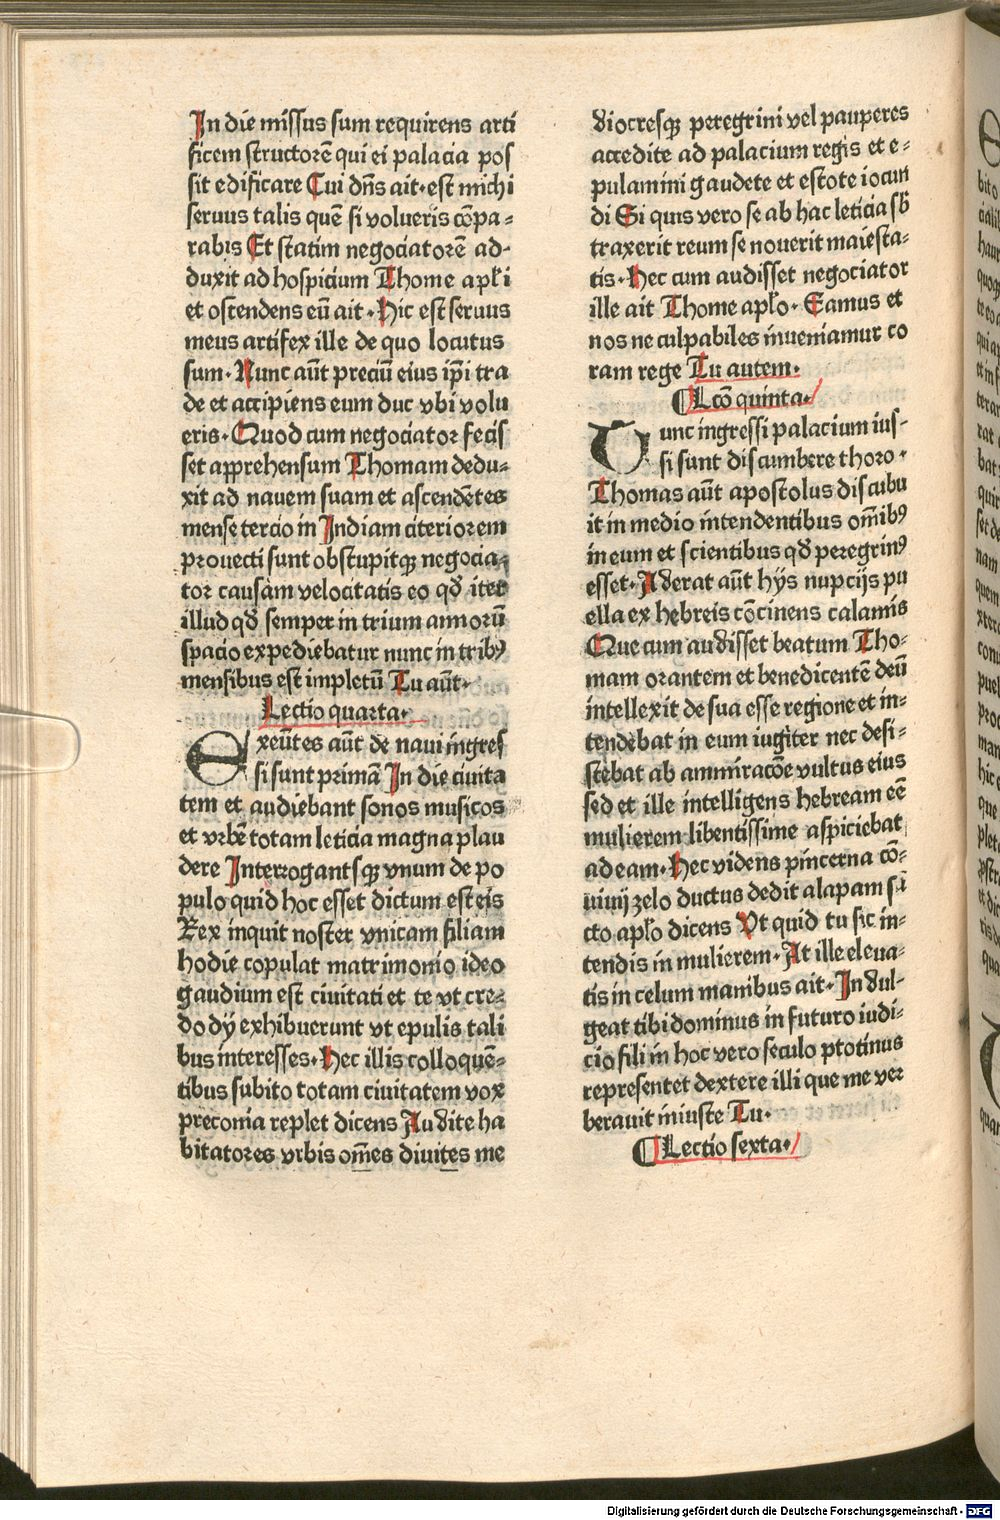 In die missus sum requirens arti
ficem structorē qui ei palacia pos
sit edificare Cui dn̄s ait·est michi
seruus talis quē si volueris cōpa-
rabis Et statim negociatorē ad-
duxit ad hospicium Thome apl̄i
et ostendens eū ait·Hic est seruus
meus artifex ille de quo locutus
sum·Nunc aūt preciū eius ip̄i tra
de et accipiens eum duc vbi volu
eris·Quod cum negociator fecis
set apprehensum Thomam dedu-
xit ad nauem suam et ascendētes
mense tercio in Indiam citeriorem
prouecti sunt obstupitqꝫ negocia-
tor causam velocitatis eo qd̄ iter
illud qd̄ semper in trium annorū
spacio expediebatur nunc in tribꝰ
mensibus est impletū Tu aūt·
Lectio quarta·
Exeūtes aūt de naui ingres
si sunt primā In die ciuita
tem et audiebant sonos musicos
et vrbē totam leticia magna plau
dere Interrogantsqꝫ vnum de po
pulo quid hoc esset dictum est eis
Rex inquit noster vnicam filiam
hodie copulat matrimonio ideo
gaudium est ciuitati et te vt cre-
do dÿ exhibuerunt vt epulis tali
bus interesses·Hec illis colloquē-
tibus subito totam ciuitatem vox
preconia replet dicens Audite ha
bitatores vrbis om̄es diuites me
diocresqꝫ peregrini vel pauperes
accedite ad palacium regis et e-
pulamini gaudete et estote iocun
di Si quis vero se ab hac leticia sb̄
traxerit reum se nouerit maiesta-
tis·Hec cum audisset negociator
ille ait Thome apl̄o·Eamus et
nos ne culpabiles inueniamur co
ram rege Tu autem·
Lcō quinta·
Tunc ingressi palacium ius-
si sunt discumbere thoro·
Thomas aūt apostolus discubu
it in medio intendentibus om̄ibꝰ
in eum et scientibus qd̄ peregrinꝰ
esset·Aderat aūt hÿs nupcijs pu
ella ex hebreis cōcinens calamis
Que cum audisset beatum Tho-
mam orantem et benedicentē deū
intellexit de sua esse regione et in-
tendebat in eum iugiter nec desi-
stebat ab ammiracōe vultus eius
sed et ille intelligens hebream eē
mulierem libentissime aspiciebat
ad eam·Hec videns pincerna cō-
uiuij zelo ductus dedit alapam sā
cto apl̄o dicens Vt quid tu sic in-
tendis in mulierem·At ille eleua-
tis in celum manibus ait·Indul-
geat tibi dominus in futuro iudi-
cio fili in hoc vero seculo ptotinus
representet dextere illi que me ver
berauit iniuste Tu·
Lectio sexta·
Digitalisierung gefördert durch die Deutsche Forschungsgemeinschaft - DFG